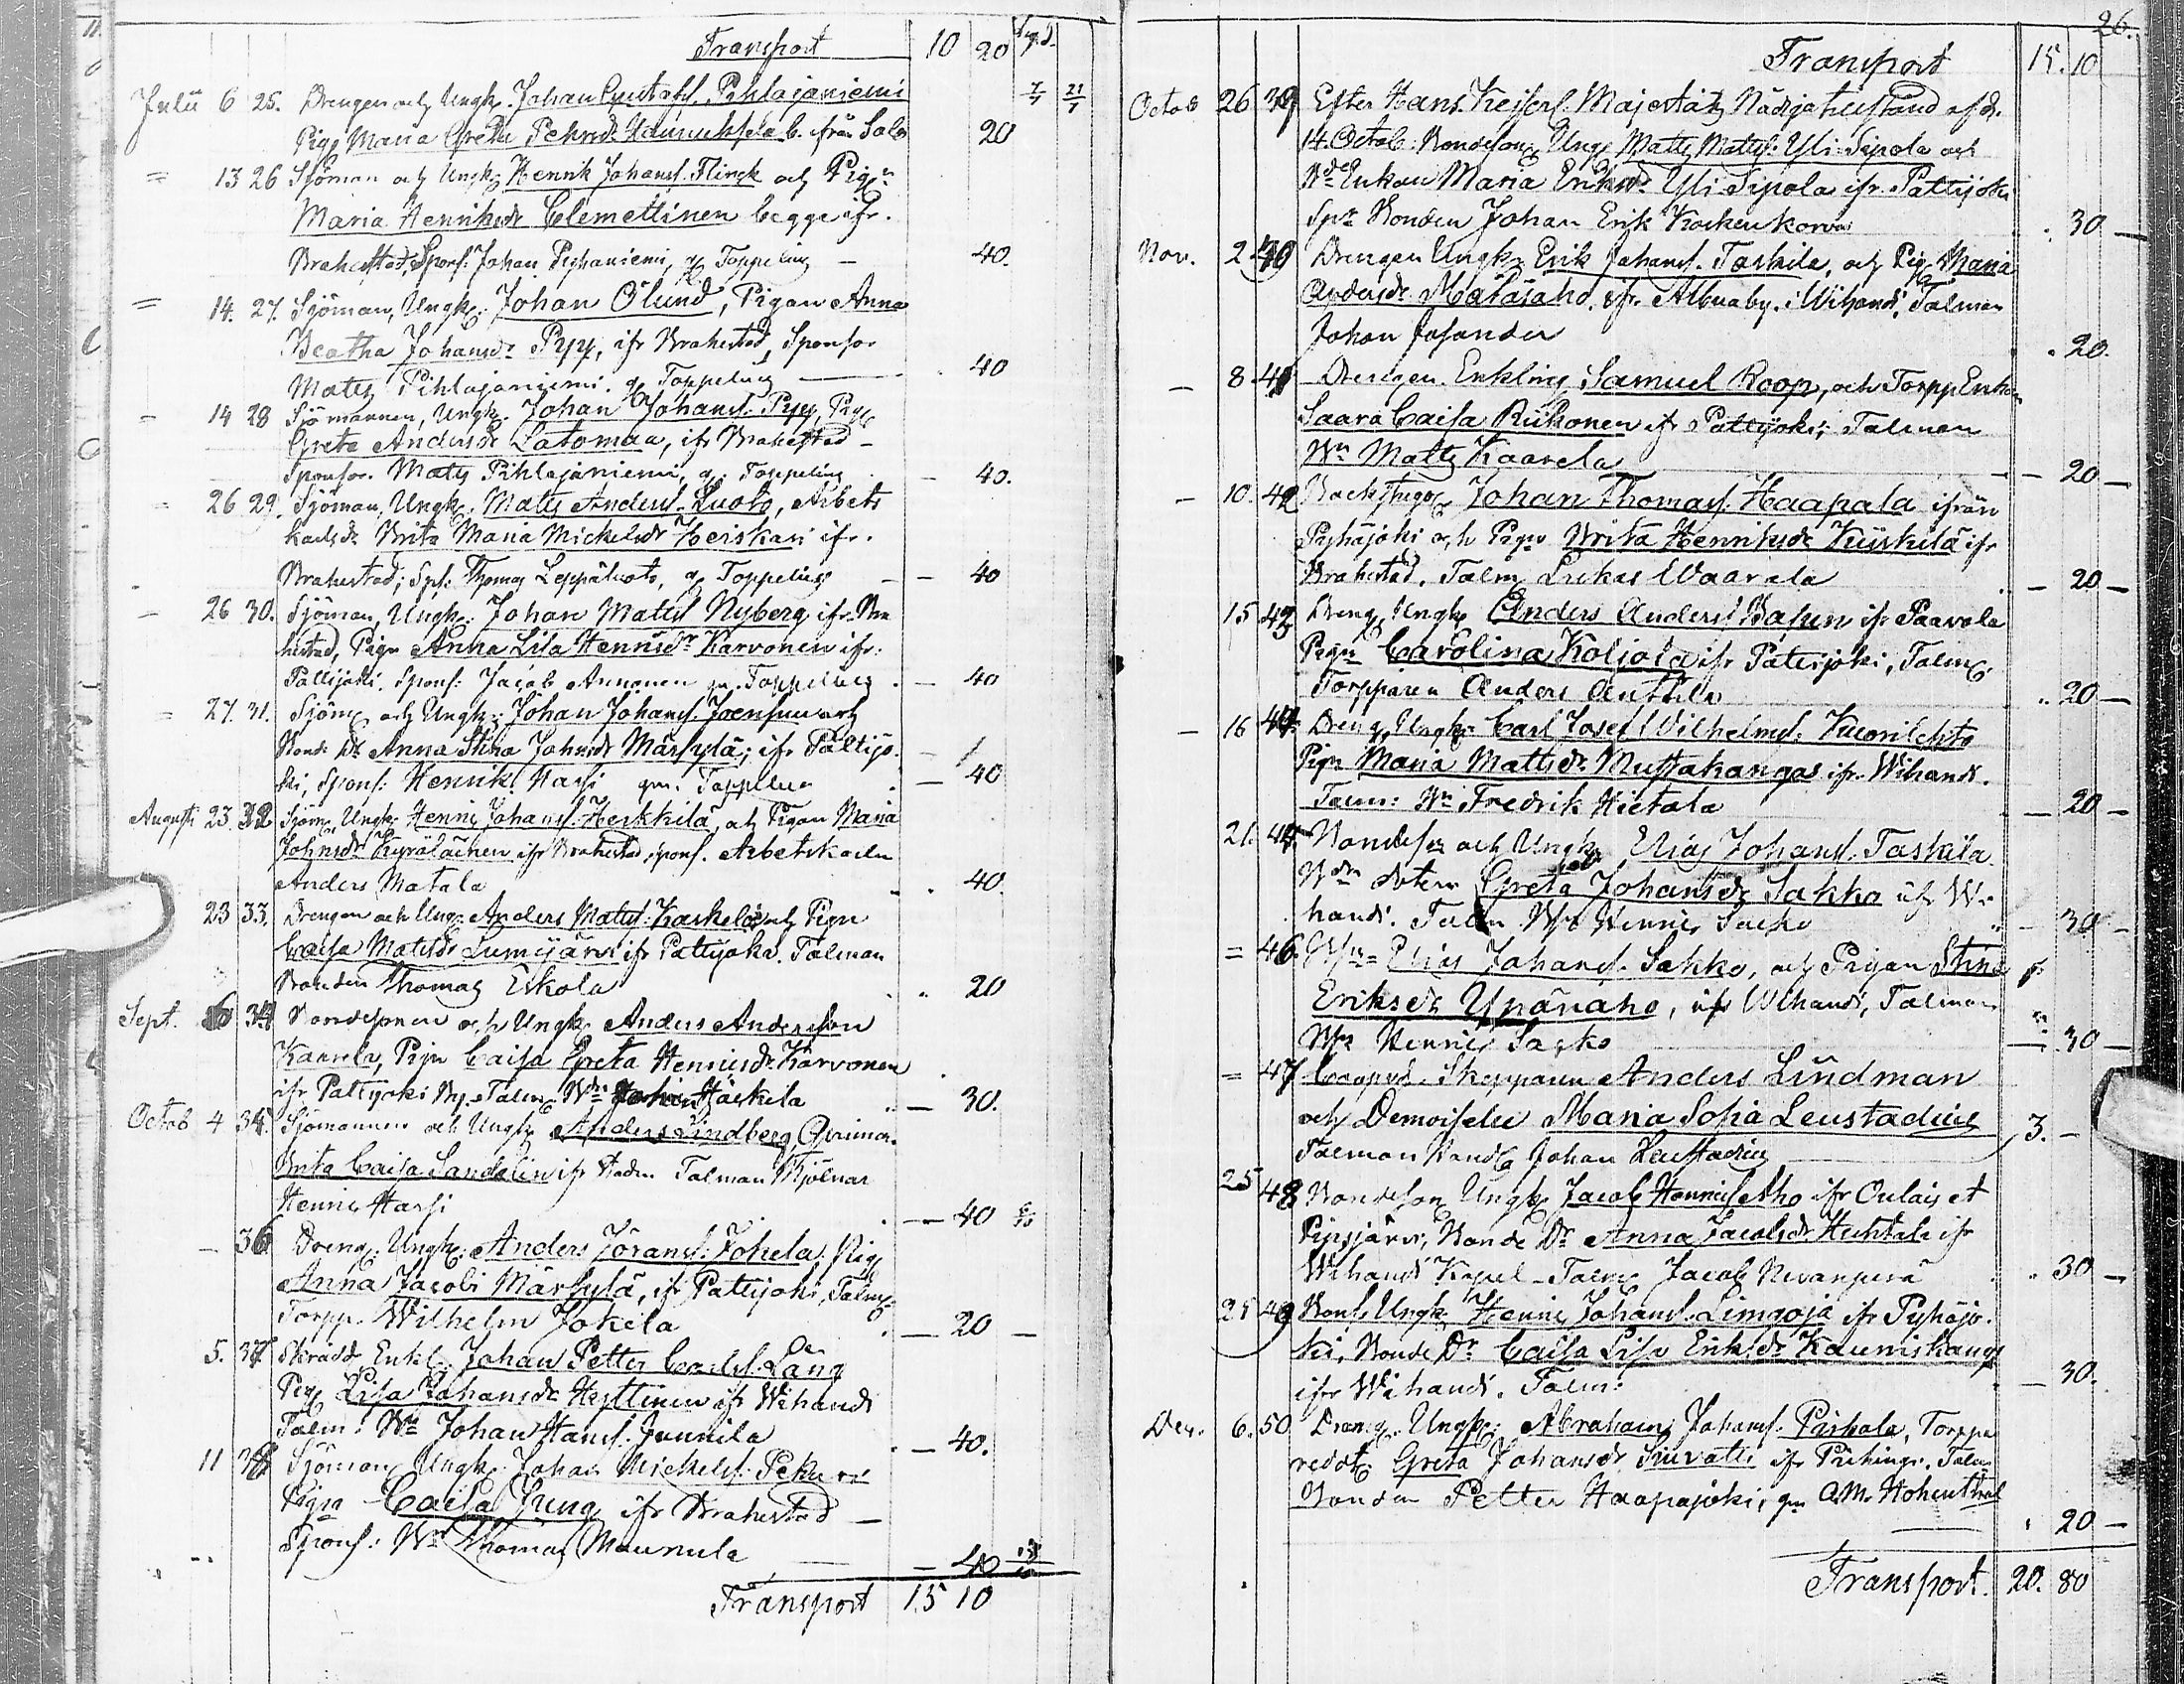 Transport 10 20
Julii 6 25. Drengen och Ungk. Johan Gustafss. Pihlajaniemi
Pig. Maria Greta Pehrsdr b. ifrån Salo 20
= 13 26 Sjöman och Ungk. Henrik Johanss. Flinck och Pign
Maria Henriksdr Clemettinen begge ifr.
Brahestad, Spons: Johan Pihaniemi, g. Toppelius — 40.
= 14. 27. Sjöman, Ungk. Johan Ölund, Pigan Anna
Beatha Johansdr Pyy, ifr Brahestad, Sponsor
Matts Pihlajaniemi. g. Toppelius — 40
– 14 28 Sjömannen, Ungk. Johan Johanss. Pyy, Pig.
Greta Andersdr Latomaa, ifr Brahestad –
Sponsor. Matts Pihlajaniemi, g. Toppelius – 40.
= 26 29. Sjöman, Ungk. Matts Anderss. Luoto, Arbets
karlsdr Brita Maria Mickelsdr Heiskari ifr.
Brahestad; Sps: Thomas Leppäluoto, g. Toppelius – – 40
– 26 30. Sjöman, Ungk. Johan Matss Nyberg ifr. Bra
hestad, Pign Anna Lisa Hennisdr Karvonen ifr:
Pattijoki. Spons: Jacob Annonen gm. Toppelius – 40
= 27. 31. Sjöm. och Ungk: Johan Johanss. Joensuu och
Bond: Dr Anna Stina Johnsdr Märsylä; ifr Pattijo-
ki, Spons: Henrik Harsi gm. Toppelius – 40
Augusti 23. 32 Sjöm. Ungk. Hennis Johanss. Heikkilä, och Pigan Maria
Johnsdr Kyräläinen ifr Brahestad, spons. Arbetskarln
Anders Matala 40.
23 33. Drengen och Ungk. Anders Matss: Kaskela och Pign
Caisa Matsdr Lumijärvi ifr Pattijoki. Talman
Bonden Thomas Eskola 20
Sept. 6 34 Bondesonen och Ungk. Anders Andersson
Kaarela, Pign Caisa Greta Hennisdr Karvonen
ifr Pattijoki By. Talm. Bdn Häskela – 30.
Octob 4 35. Sjömannen och Ungk. Anders Lindberg
Brita Caisa Sandelin ifr Staden Talman Mjölnar
Hennis Harsi – 40
– 36 Dreng. Ungk. Anders Jöranss: Jokela, Pig
Anna Jacobi Märsylä, ifr Pattijoki, Talm.
Torpp. Wilhelm Jokela – 20 –
5. 37 Skrädd. Enkl. Johan Petter Carlss. Lång
Pig. Lisa Johansdr Hyttinen ifr Wihandi
Talm: Bn Johan Hanss. Junnila – 40.
11 38 Sjöman, Ungk. Johan Mickelss. Pekuri
Pign Caisa Jung ifr Brahestad –
Spons: Bn Thomas Maunula – 40
Transport 15 10
26.
Transport 15. 10
Octob 26 39 Efter Hans Keiserl. Majestäts Nådiga tillstånd af d.
14 Octob. Bondeson Ung. Matts Matss: Yli Sipola och
Bde Enkan Maria Eriksdr Yli Sipola ifr. Pattijoki
Spr Bonden Johan Erik Kockenkorva . 30 –
Nov. 2 40 Drengen Ungk. Erik Johanss. Taskila, och Pig. Maria
Andersdr Matasaho ifr. by. i Wihandi, Talman
Johan Josander . 20.
– 8 41 Drengen Enkling Samuel Roop, och Torpp Enkan
Saara Caisa Riikonen ifr Pattijoki; Talman
Bn Matts Kaarela – 20 –
– 10. 42 Backstug. Johan Thomass. Haapala ifrån
Pyhäjoki och Pign Brita Henriksdr Kiiskilä ifr
Brahestad. Talm Lukas Waarala – 20 –
15 43 Dreng. Ungk. Anders Anderss ifr Paavola
Pign Carolina Koljola ifr Pattijoki, Talm.
Torpparen Anders Anttila .. 20 –
– 16 44. Dreng. Ungk. Carl Josef Wilhelmss. Kuorilehto
Pign Maria Mattsdr Mustakangas ifr. Wihandi.
Talm: Bn Fredrik Hietala – 20 –
21. 45. Bondeson och Ungk. Elias Johanss. Taskila
Bdn dotern Greta Johansdr Sakko ifr Wi-
handi. Talm Bn Hennis Sacko – 30 –
= 46. Elias Johanss. Sakko, och Pigan Stina
Eriksdr Ypänaho, ifr Wihandi, Talman
Bn Hennis Sacko – 30 –
= 47 Skepparen Anders Lindman
och Demoiselle Maria Sofia Leustadius 3. –
Talman Handl. Johan Leustadius
25 48 Bondeson Ungk. Jacob Henniss Aho ifr Oulais et
Pipsjärvi, Bonde Dr Anna Jacobsdr Huhtala ifr
Wihandi Kapel. Talm. Jacob Nivanperä . 30 –
25 49 Bons. Ungk. Hennis Johanss. Limgoja ifr Pyhäjo-
ki, Bonde Dr Caisa Lisa Eriksdr Kauniskangas
ifr Wihandi. Talm: – 30.
Dec. 6. 50 Dreng. Ungk: Abraham Johanss. Pirhala, Torppa
redot. Greta Johansdr Siuvatti ifr Piehingi. Talm
Bonden Petter Haapajoki, gm A.M. Hohenthal
. 20 –
Transport. 20. 80